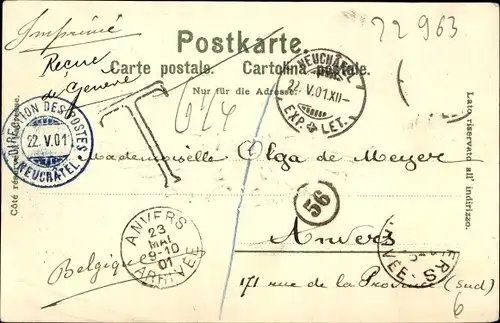 Imprimé
22963
Postkarte.
Reçue
de Genève
Carte postale. Cartolina postale.
Nur für die Adresse.
NEUCHÂTEL
22. V.01.XII-
EXP. LET.
T
DIRECTION DES POSTES
22. V.01
NEUCHÂTEL
Côté réservé à l'adresse.
Lato riservato all' indirizzo.
Mademoiselle Olga de Meyer
56
ANVERS
23
MAI
9-10
01
ARRIVÉE
Anvers
Belgique
171 rue de la Province (Sud)
6